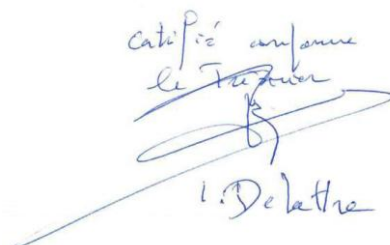 certifié conforme
le Trésorier
I. Delattre